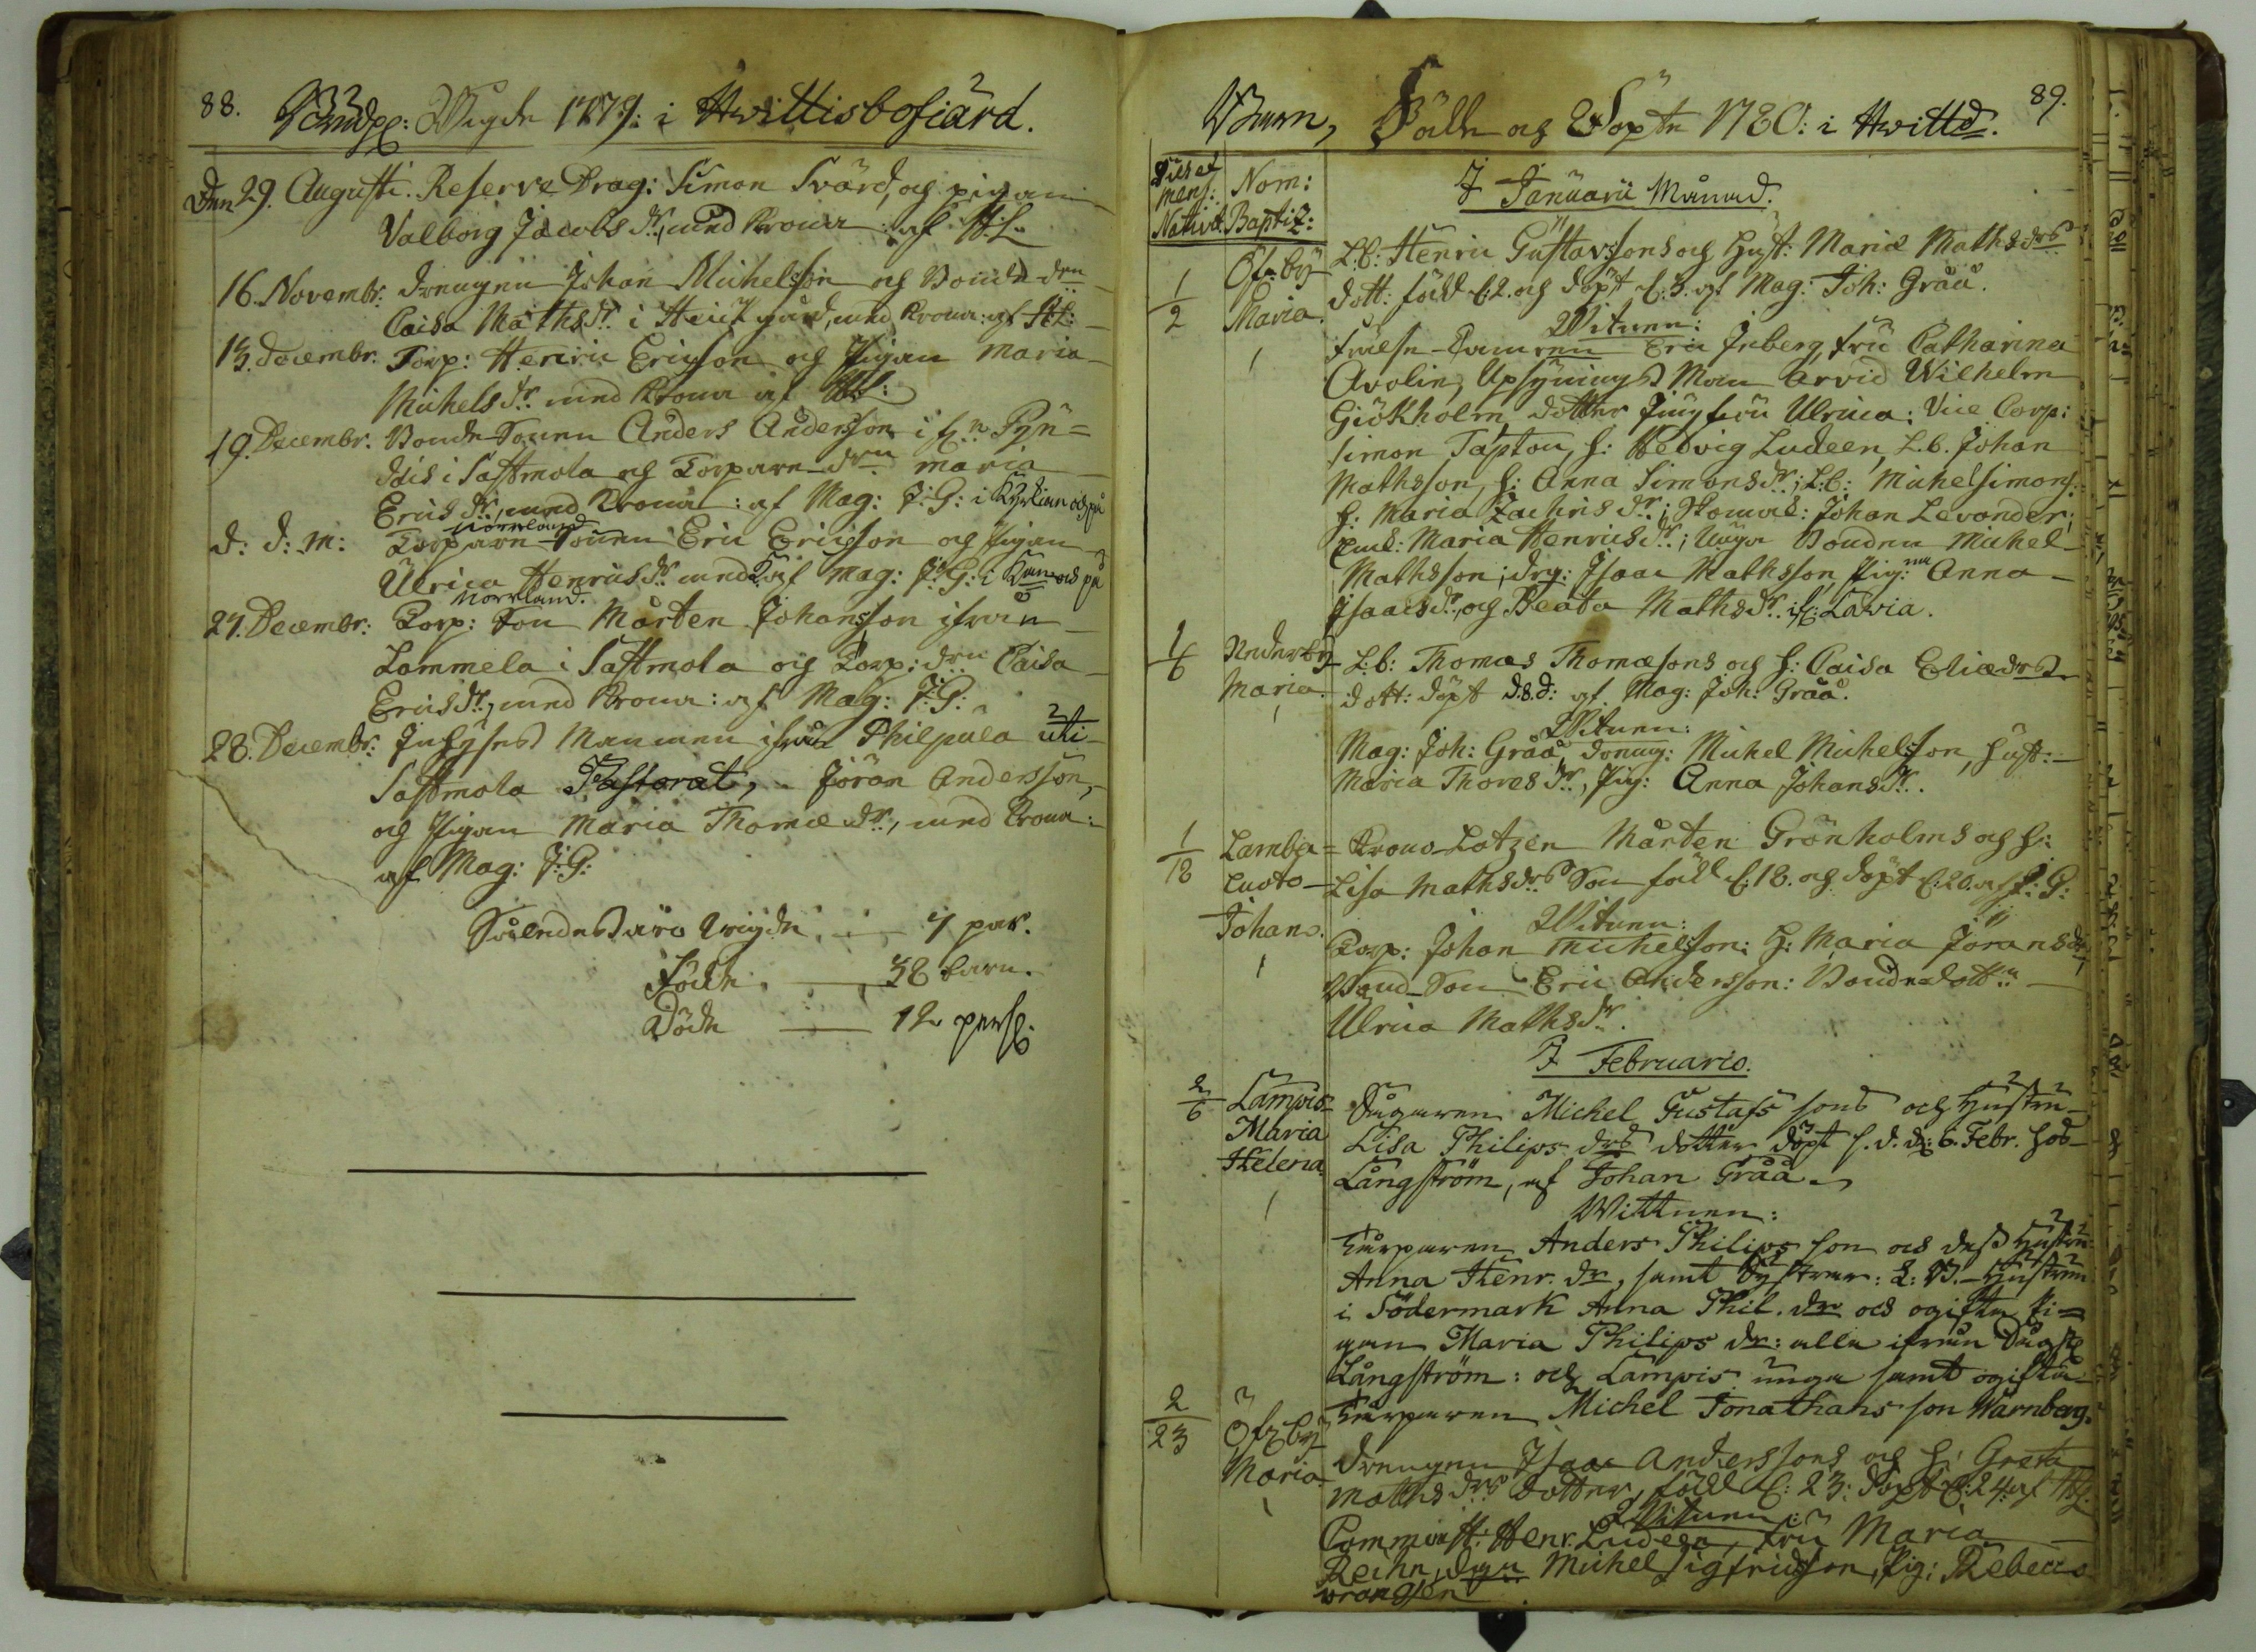 88.
Wigde 1779: i Hvittisbofiärd.
Den 29. Augusti. Reserve Drag: Simon Svärd, og pigan
Valborg Jacobs dr., med Krona: af H:L.
16. Novembr. Drengen Johan Michelsson og Bonde-dn
Caisa Mathsdr. i Heickgård, med Krona: af HL:
13. decembr: Torp: Henric Ericsson og Pigan Maria
Michelsdr. med Krona af HL:
19. Decembr. Bonde-Sonen Anders Andersson i
i Sastmola og Torpare-dren Maria
Ericsdr., med Krona: af Mag: J:G: i Kyrkian och på
Norrland
d: d: m: Torpare-Sonen Eric Ericsson og Pigan
Ulrica Henricsdr. med K. af Mag: J:G: i och på
Norrland.
27. Decembr: Torp: Son Mårten Johansson ifrån
Lammela i Sastmola og Torp: dren Caisa
Ericsdr., med Krona: af Mag: J:G:
28. Decembr: Inhyses Mannen ifrån Philpula uti
Sastmola Pastorat, Jöran Andersson,
og Pigan Maria Thomædr., med Krona:
af Mag: J:G:
Således äro Wigde, — 7 par.
Födde, — 38 barn.
Döde — 12 pers:
89.
Barn, Födde og Döpte 1780: i Hvittb.
Dies et
mens:
Nativit.
Nom:
Baptiz:
I Januarii Månad.
1/2 Öfr:by L.b: Henric Gustavssons og Hust: Maria Mathsdrs
Maria. dott: född d:2. og döpt d:3. af Mag: Joh: Gråå.
Witnen:
Eric Inberg, Fru Catharina
Avolin, Upsynings Man Arvid Wilhelm
Giökholm, dotter Jungfru Ulrica: Vice Corp:
Simon Tapton, h: Hedvig Ludeen, L.b. Johan
Mathsson, h: Anna Simonsdr.; L:b: Michel Simons:
h: Maria Zachrisdr.; Johan Levander;
Maria Henricsdr.; Unga Bonden Michel
Mathsson; drg: Isaac Mathsson, Pig:na Anna
Isaacsdr., og Beata Mathsdr. if: Lavia.
1/6 Nederby L:b: Thomas Thomæsons og h: Caisa Eliædrs
Maria. dott: döpt d.8.d: af Mag: Joh: Gråå.
Witnen:
Mag: Joh: Gråå, dreng: Michel Michelsson, hust:
Maria Thomasdr., Pig: Anna Johansdr.
1/18 Lamba= Krono-Lotzen Mårten Grönholms og h:
luoto Lisa Mathsdrs Son född d:18. og döpt d:20. af J:G:
Johan. Witnen:
Torp: Johan Michelsson: H: Maria Jöransdr.,
Bond-Son Eric Andersson: Bonde-dottn
Ulrica Mathsdr.
I Februario.
2/6 Lampis= Michel Gustafs sons och Hustru
Maria Lisa Philips drs dotter döpt s. d. d: 6. Febr. hos
Helena. Långström, af Johan Gråå.
Wittnen:
Torparen Anders Philips son och dess Hustru
Anna Henr. dr, samt Systrar: L: B.-Hustrun
i Södermark Anna Phil. dr och ogifta Pi=
gan Maria Philips dr: alla ifrån
Långström: och Lampis unga samt ogifta
Torparen Michel Jonathans son Warnberg.
2/23 Öfr:by Drengen Isaac Anderssons og h: Greta
Maria Mathsdrs Dotter, född d: 23: döpt d:24 af HL.
Witnen:
Comminist: Henr. Ludeen, Fru Maria
Reihn, Michel Sigfridsson, Pig: Rebecca